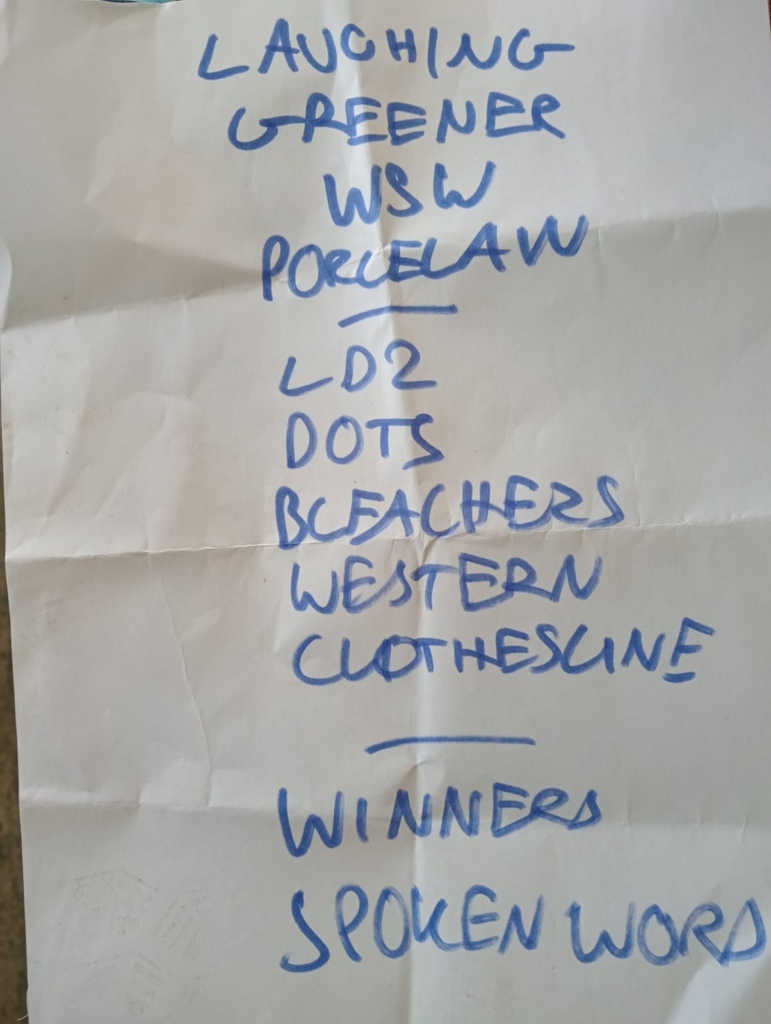 LAUGHING
GREENER
WSW
PORCELAIN
LD2
DOTS
BLEACHERS
WESTERN
CLOTHESLINE
WINNERS
SPOKEN WORD